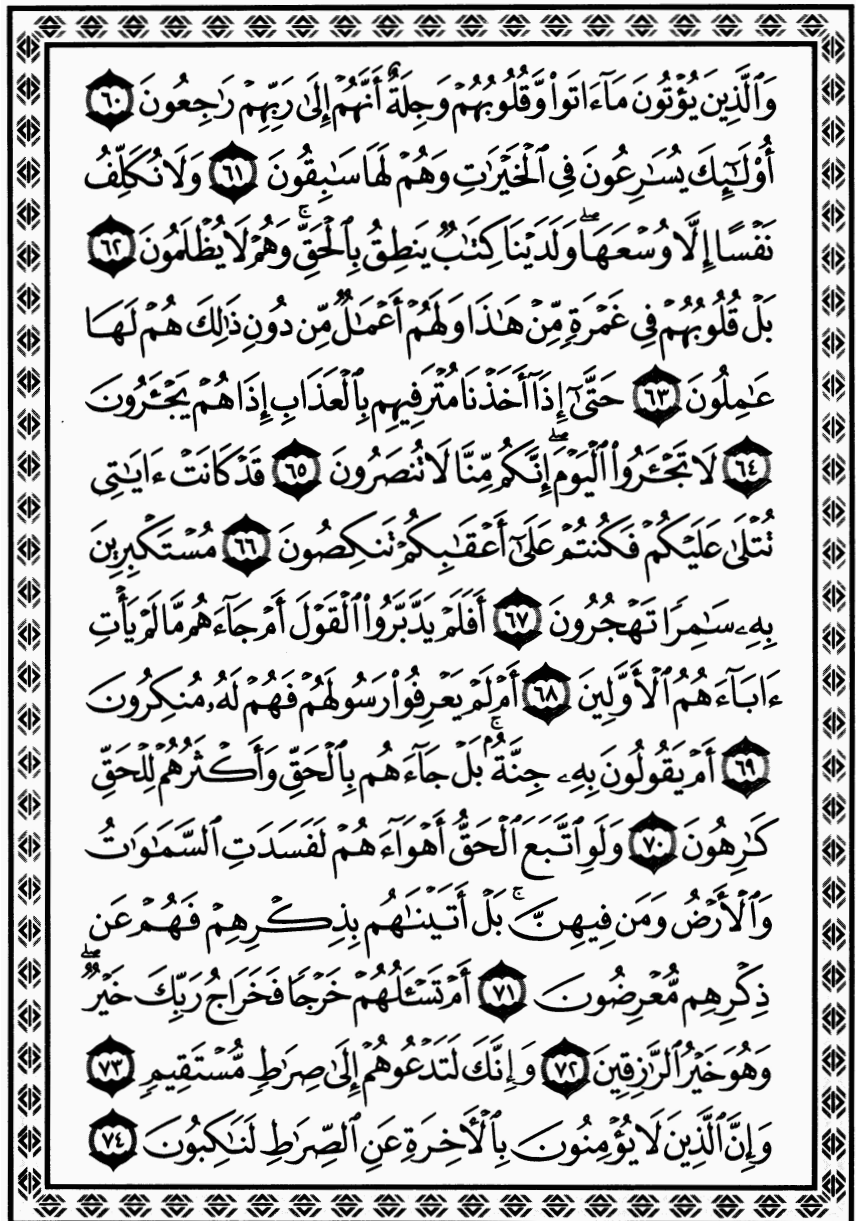 وَٱلَّذِينَ يُؤْتُونَ مَآ ءَاتَوا۟ وَّقُلُوبُهُمْ وَجِلَةٌ أَنَّهُمْ إِلَىٰ رَبِّهِمْ رَٰجِعُونَ ٦٠
أُو۟لَٰٓئِكَ يُسَٰرِعُونَ فِى ٱلْخَيْرَٰتِ وَهُمْ لَهَا سَٰبِقُونَ ٦١ وَلَا نُكَلِّفُ
نَفْسًا إِلَّا وُسْعَهَا ۖ وَلَدَيْنَا كِتَٰبٌ يَنطِقُ بِٱلْحَقِّ ۚ وَهُمْ لَا يُظْلَمُونَ ٦٢
بَلْ قُلُوبُهُمْ فِى غَمْرَةٍ مِّنْ هَٰذَا وَلَهُمْ أَعْمَٰلٌ مِّن دُونِ ذَٰلِكَ هُمْ لَهَا
عَٰمِلُونَ ٦٣ حَتَّىٰٓ إِذَآ أَخَذْنَا مُتْرَفِيهِم بِٱلْعَذَابِ إِذَا هُمْ يَجْـَٔرُونَ
٦٤ لَا تَجْـَٔرُوا۟ ٱلْيَوْمَ ۖ إِنَّكُم مِّنَّا لَا تُنصَرُونَ ٦٥ قَدْ كَانَتْ ءَايَٰتِى
تُتْلَىٰ عَلَيْكُمْ فَكُنتُمْ عَلَىٰٓ أَعْقَٰبِكُمْ تَنكِصُونَ ٦٦ مُسْتَكْبِرِينَ
بِهِۦ سَٰمِرًا تَهْجُرُونَ ٦٧ أَفَلَمْ يَدَّبَّرُوا۟ ٱلْقَوْلَ أَمْ جَآءَهُم مَّا لَمْ يَأْتِ
ءَابَآءَهُمُ ٱلْأَوَّلِينَ ٦٨ أَمْ لَمْ يَعْرِفُوا۟ رَسُولَهُمْ فَهُمْ لَهُۥ مُنكِرُونَ
٦٩ أَمْ يَقُولُونَ بِهِۦ جِنَّةٌۢ ۚ بَلْ جَآءَهُم بِٱلْحَقِّ وَأَكْثَرُهُمْ لِلْحَقِّ
كَٰرِهُونَ ٧٠ وَلَوِ ٱتَّبَعَ ٱلْحَقُّ أَهْوَآءَهُمْ لَفَسَدَتِ ٱلسَّمَٰوَٰتُ
وَٱلْأَرْضُ وَمَن فِيهِنَّ ۚ بَلْ أَتَيْنَٰهُم بِذِكْرِهِمْ فَهُمْ عَن
ذِكْرِهِم مُّعْرِضُونَ ٧١ أَمْ تَسْـَٔلُهُمْ خَرْجًا فَخَرَاجُ رَبِّكَ خَيْرٌ ۖ
وَهُوَ خَيْرُ ٱلرَّٰزِقِينَ ٧٢ وَإِنَّكَ لَتَدْعُوهُمْ إِلَىٰ صِرَٰطٍ مُّسْتَقِيمٍ ٧٣
وَإِنَّ ٱلَّذِينَ لَا يُؤْمِنُونَ بِٱلْءَاخِرَةِ عَنِ ٱلصِّرَٰطِ لَنَٰكِبُونَ ٧٤